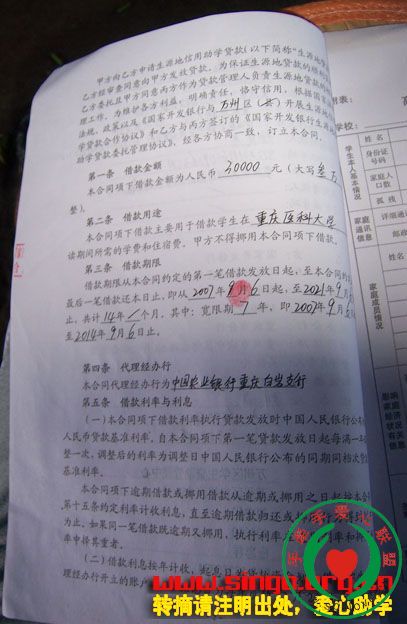 甲方向乙方申请生源地信用助学贷款(以下简称"生源地
乙方经审查同意向甲方发放贷款。为保证生源地贷款的顺利
乙方委托且甲方同意丙方作为贷款管理人员责生源地贷款的
工作。为维护各方利益,明确责任,恪守信用,根据
法规、政策以及《国家开发银行与 万州 区(县)开展生源地
学贷款合作协议》和乙方与丙方签订的《国家开发银行生源
助学贷款委托管理协议》,经各方协商一致,订立本合同。
第一条 借款金额
本合同项下借款金额为人民币 30000 元(大写 叁万
整)。
第二条 借款用途
本合同项下借款主要用于借款学生在 重庆医科大学
读期间所需的学费和住宿费。甲方不得挪用本合同项下借款。
第三条 借款期限
借款期限从本合同约定的第一笔借款发放日起,至本合同约
最后一笔借款还本日止,即从 2007年9月6日起,至2021年9月
止,共计 14年 / 个月。其中:宽限期 7 年,即 2007年9月
至2014年9月6日止。
第四条 代理经办行
本合同代理经办行为 中国农业银行重庆白岩支行
第五条 借款利率与利息
(一)本合同项下借款利率执行贷款发放时中国人民银行公布
人民币贷款基准利率。自本合同项下第一笔贷款发放日起每满一
整一次,调整后的利率为调整日中国人民银行公布的同期同档次
基准利率。
本合同项下逾期借款或挪用借款从逾期或挪用之日起按本
第十五条约定利率计收利息,直至逾期借款归还或
为止。如果同一笔借款既逾期又挪用,执行利率
率中择其重者。
(二)借款利息按年计收,起息日
理经办行开立的账户
学校:
学生本人基本情况
姓名
身份证号码
家庭人口数
孤残
家庭通讯信息
详细通
邮政
家庭成员情况
姓名
影响家庭经济状况有关信息
爱心联盟
www.singo.org.cn
转摘请注明出处,爱心助学